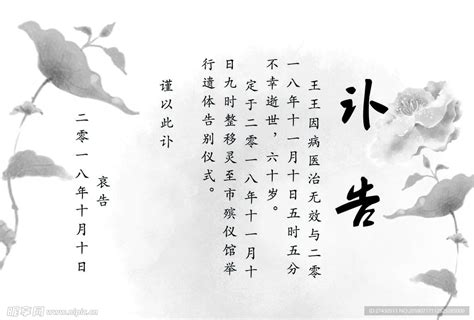 讣告
王王因病医治无效与二零
一八年十一月十日五时五分
不幸逝世，六十岁。
定于二零一八年十一月十
日九时整移灵至市殡仪馆举
行遗体告别仪式。
谨以此讣
哀告
二零一八年十月十日
昵图网